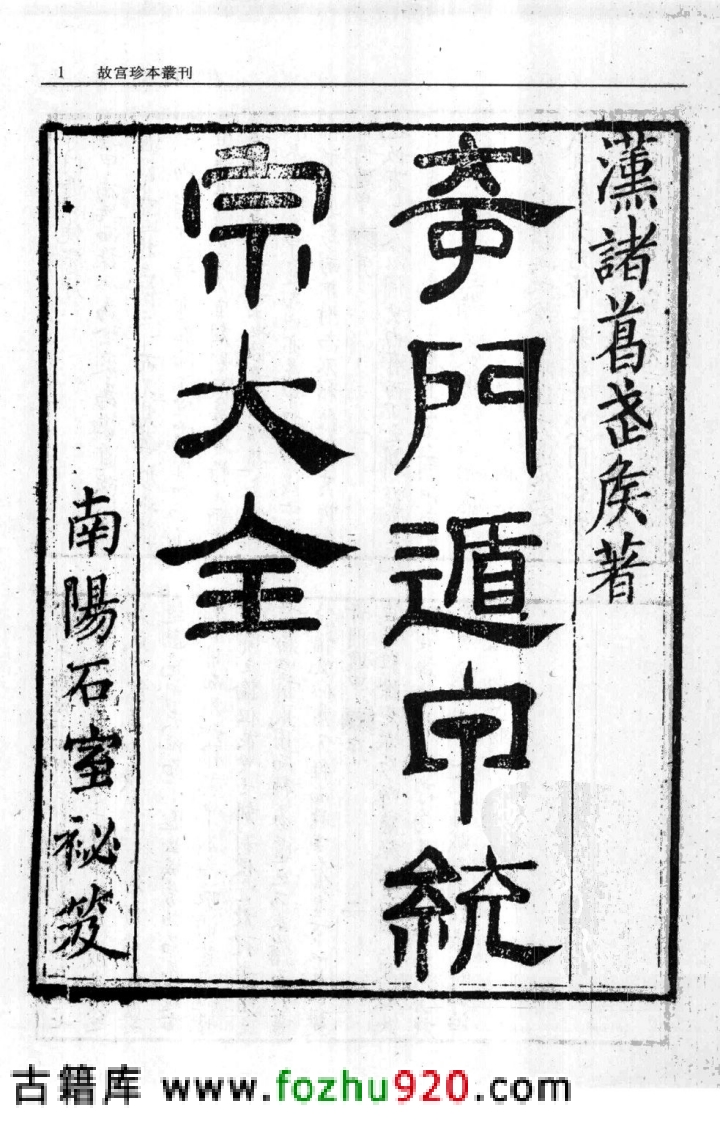 1 故宫珍本叢刊
漢諸葛武侯著
奇門遁甲統
宗大全
南陽石室祕笈
古籍库 www.fozhu920.com